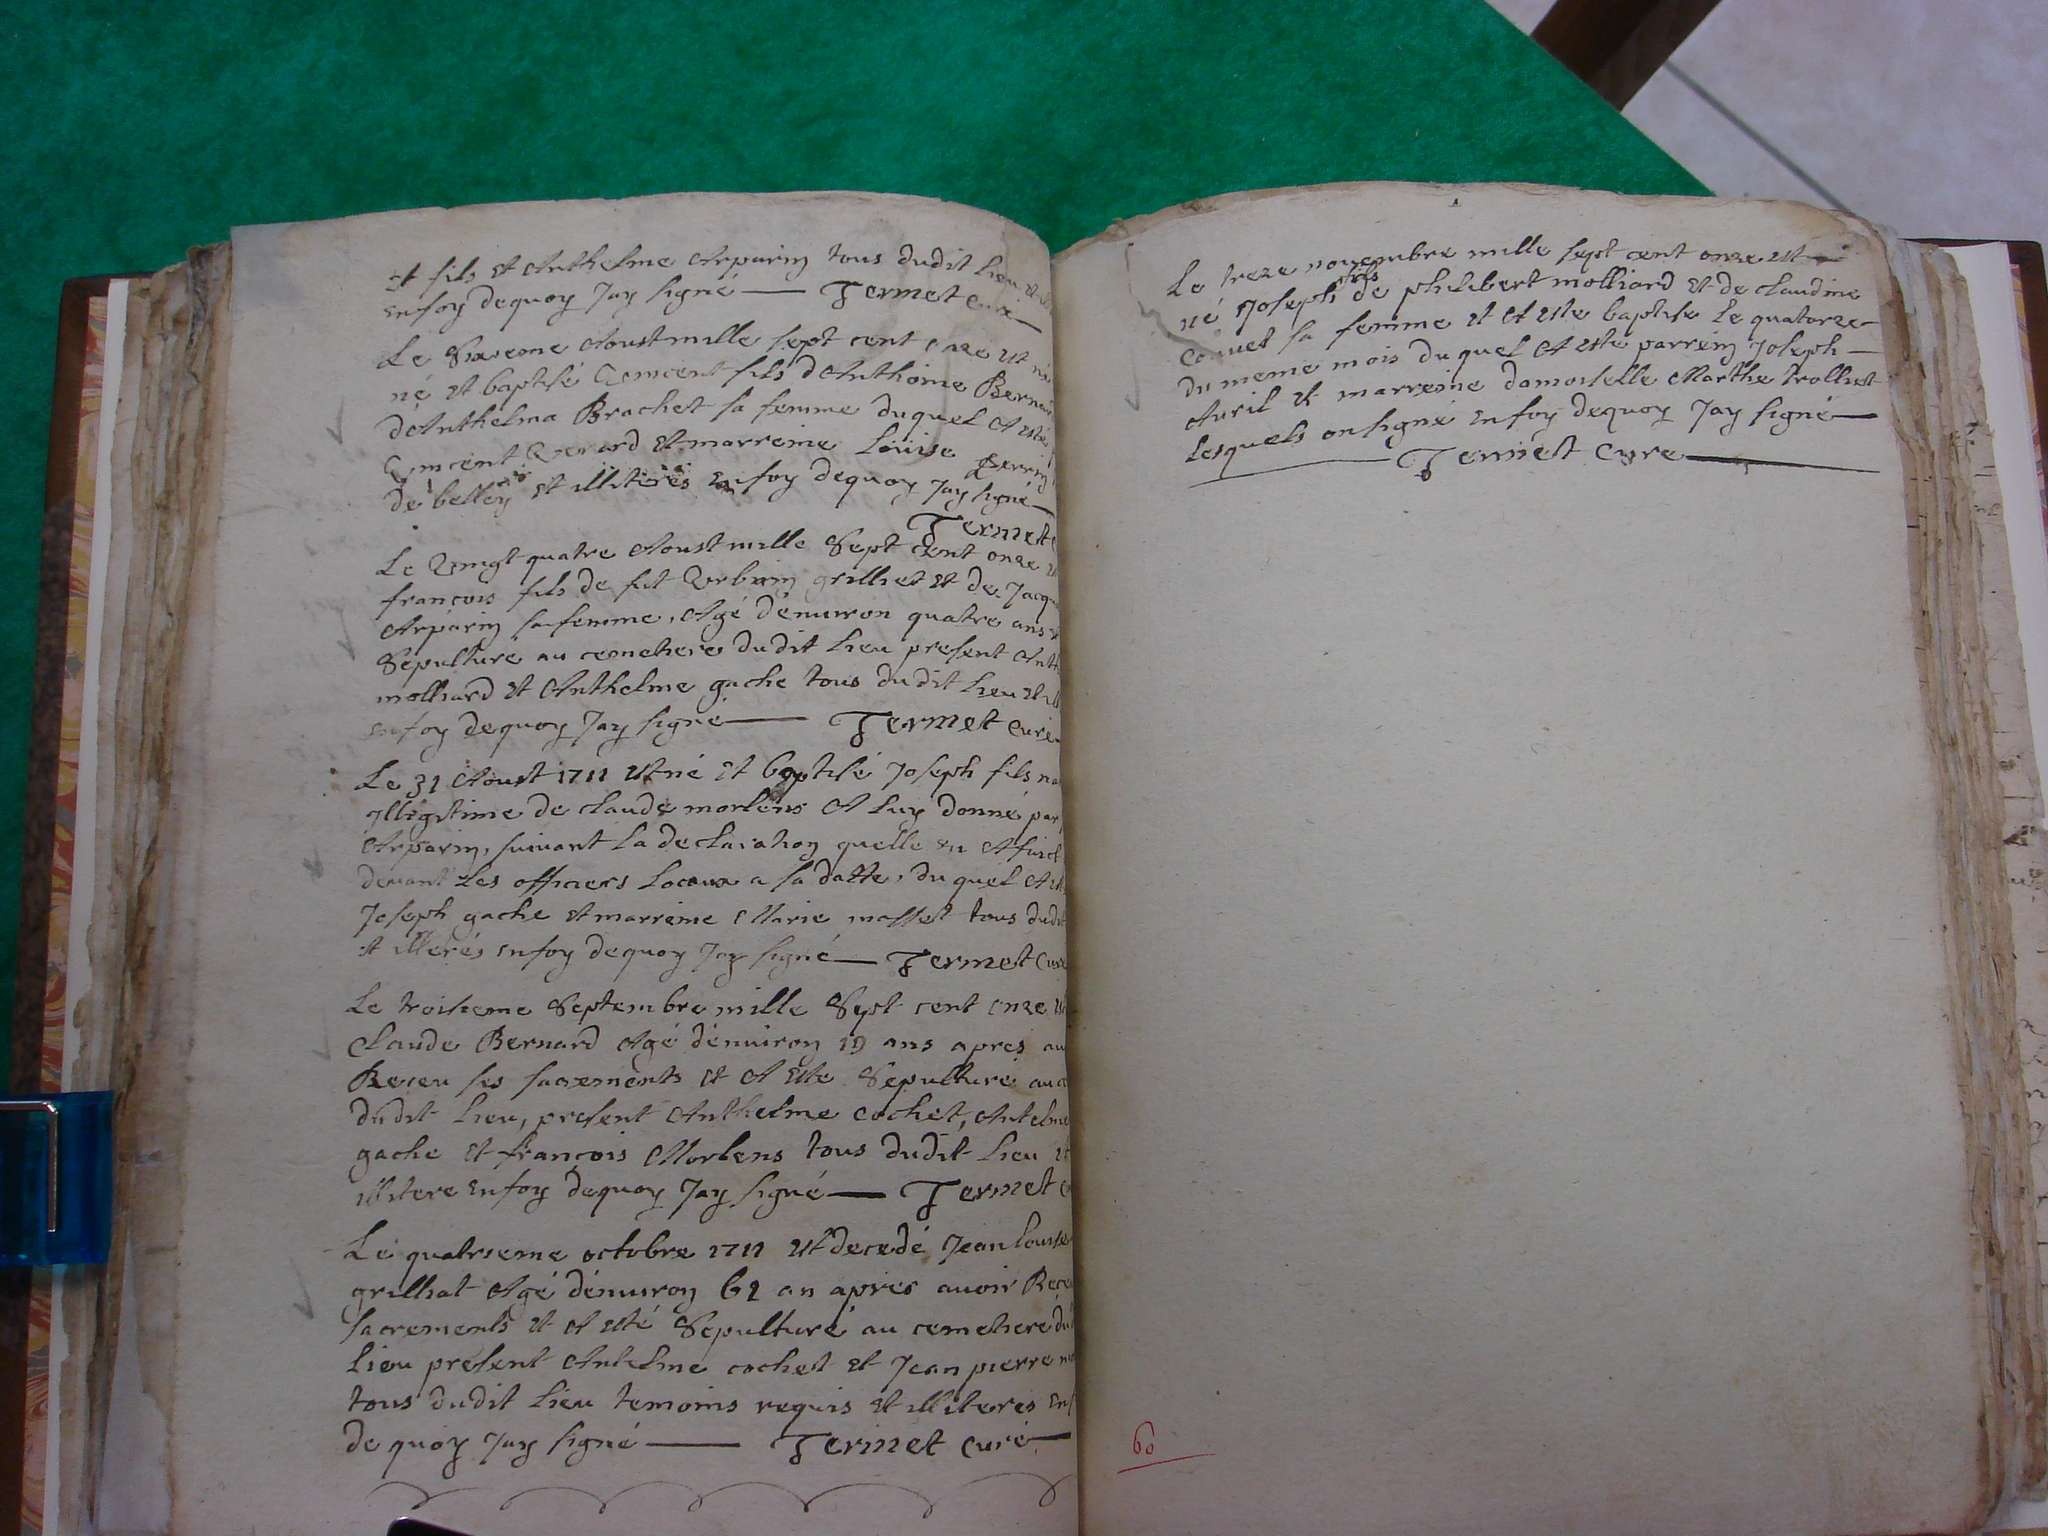 et fils et Anthelme Arparin tous dudit lieu et
enfoy dequoy Jay signé Termet Curé
Le Sixieme Aoust mille sept cent onze est
né et baptisé Vincent fils dAnthoine Bernard
dAnthelma Brachet sa femme duquel A esté
Vincent Verard et marreine Louise Perrin
de belley et illiterés Enfoy dequoy Jay signé
Termet
Le Vingt quatre Aoust mille Sept Cent onze
françois fils de fut Vrbain grilliet et de Jacqu
Arparin sa femme, Agé d'enuiron quatre ans
Sepulturé au cemetiere dudit Lieu present Anth
molliard et Anthelme gache tous dudit Lieu et
enfoy dequoy Jay signé Termet Curé
Le 31 Aoust 1711 est né et baptisé Joseph fils na
illegitime de claude morlens A Luy donné par
Arparin, suiuant La declaration quelle en A
deuant Les officiers Locaux a sa datte, duquel A
Joseph gache et marreine Marie masset tous dudit
et illerés enfoy dequoy Jay signé Termet Curé
Le troisieme Septembre mille Sept cent onze
Claude Bernard Agé d'enuiron 19 ans apres au
Receu ses sacrements et A esté Sepulturé au
dudit Lieu, present Anthelme cochet, Antelme
gache et françois Morlens tous dudit Lieu et
illitere enfoy dequoy Jay signé Termet
Le quatrieme octobre 1711 est decedé Jean Louise
grilliat Agé d'enuiron 62 an apres auoir Rece
sacrements et A esté Sepulturé au cemetiere du
Lieu present Antelme cochet et Jean pierre
tous dudit Lieu temoins requis et illiteres Enf
de quoy Jay signé Termet Curé
Le treze nouembre mille sept cent onze est
né Joseph fils de philibert molliard et de claudine
sa femme et A este baptise Le quatorze
du meme mois duquel A esté parrein Joseph
Auril et marreine damoiselle Marthe trolliet
Lesquels on signé enfoy dequoy Jay signé
Termet Cure
60